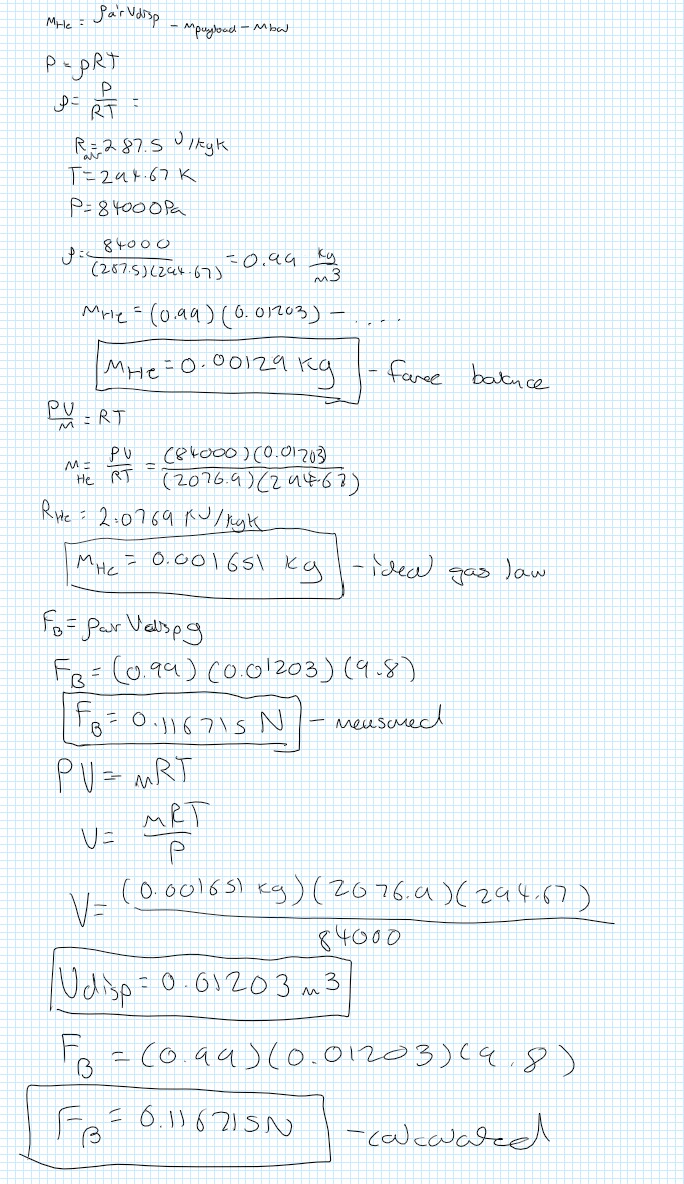 mHe = ρair Vdisp - mpayload - mbal
P = ρRT
ρ = P/RT =
Rair = 287.5 J/kgK
T = 294.67 K
P = 84000 Pa
ρ = 84000/(287.5)(294.67) = 0.99 kg/m3
mHe = (0.99)(0.01203) - ....
mHe = 0.00129 kg - force balance
PV/m = RT
mHe = PV/RT = (84000)(0.01203)/(2076.9)(294.67)
RHe = 2.0769 KJ/kgK
mHe = 0.001651 kg - ideal gas law
FB = ρair Vdisp g
FB = (0.99)(0.01203)(9.8)
FB = 0.116715 N - measured
PV = mRT
V = mRT/P
V = (0.001651 kg)(2076.9)(294.67)/84000
Vdisp = 0.01203 m3
FB = (0.99)(0.01203)(9.8)
FB = 0.116715N - calculated